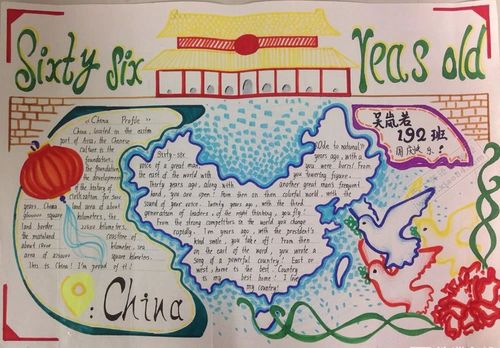 Sixty six Yeas old
《China Profile》
China, located in the eastern
part of Asia, the Chinese
culture is the
foundation,
the foundation
the development
of the history of
civilization, for 5000
years. China land area of about
kilometers, the
land border 22800 kilometers,
the mainland coastline of
about 18000 kilometers, sea
area of square kilometers.
This is China! I'm proud of it!
: China
Sixty-six
voice of a great man
the east of the world with
Thirty years ago, along with
hand, you are open!
sound of your voice. Twenty years ago, with the third
generation of leaders of the right thinking, you fly!
From the strong competitors in the world you change
rapidly. Ten years ago, with the president's
kind smile, you take off! From then
on the east of the world, you wrote a
song of a powerful country! East or
west, home is the best. Country
is my best home! I
my country!
《Ode to national》
years ago, with a
you were born! From
you towering figure
another great man's
From then on, them colorful world, with the
吴岚若
192班
国庆快乐!